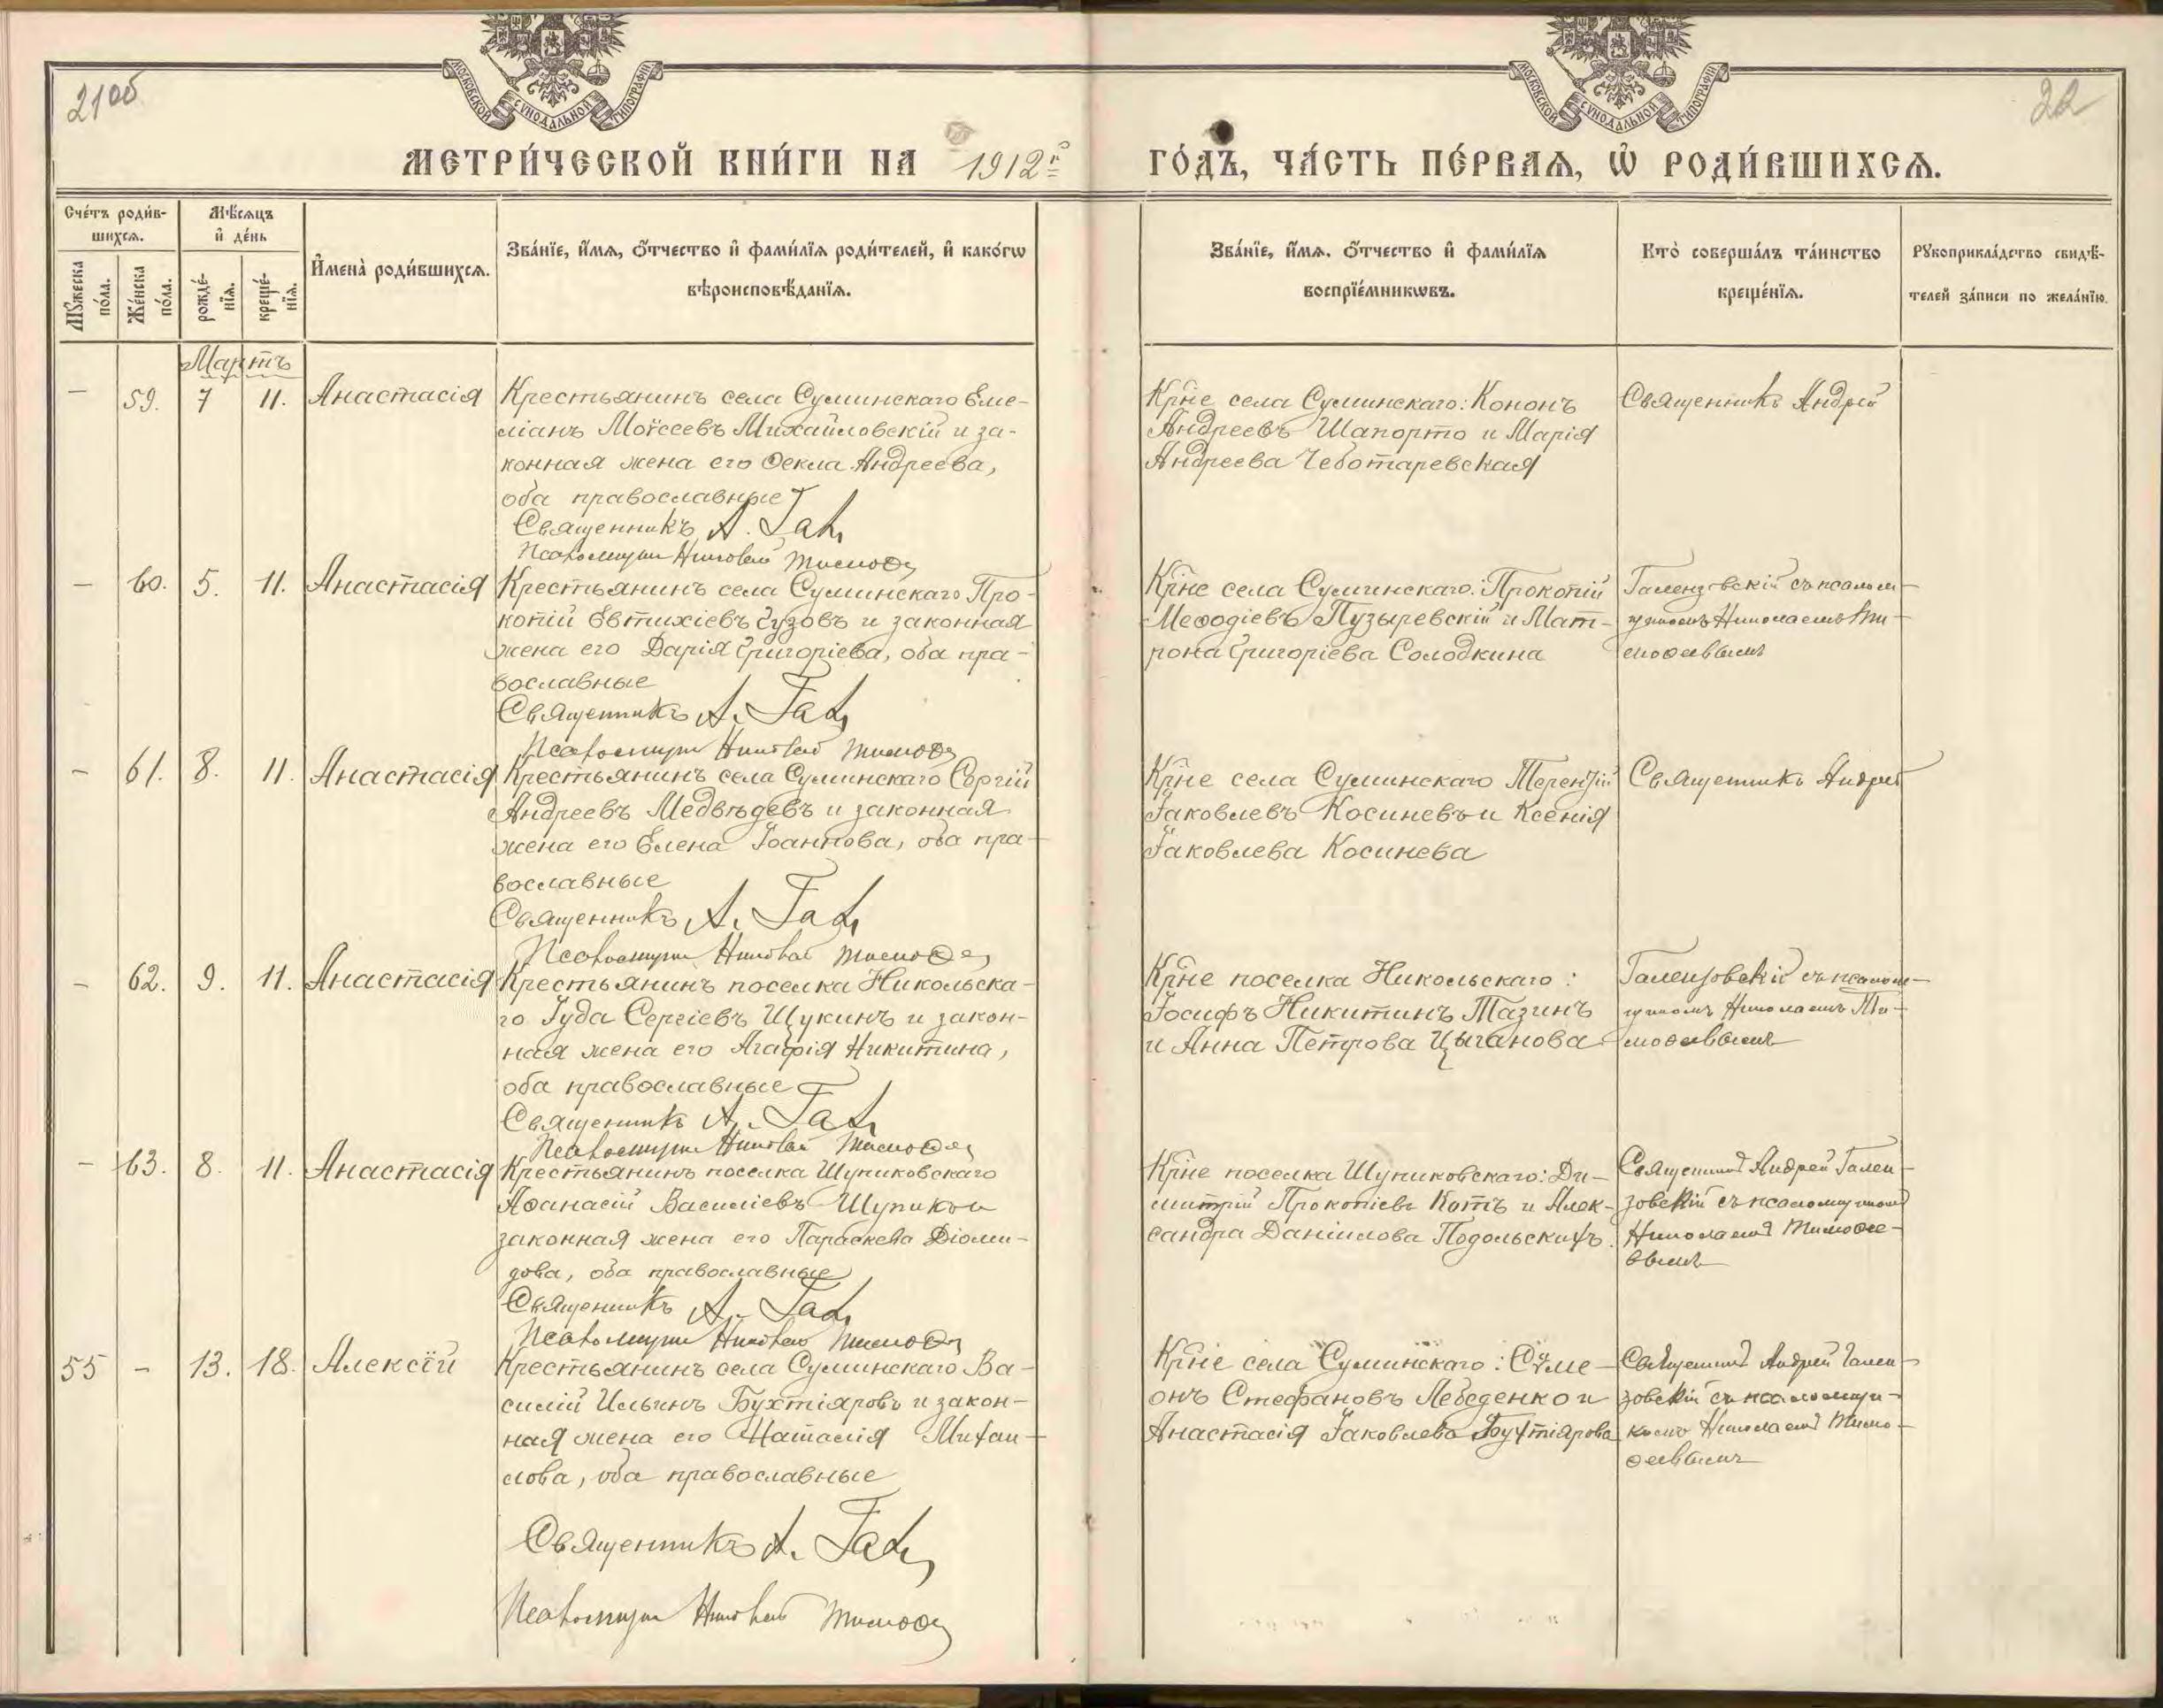 МОСКОВСКОЙ СѴНОДАЛЬНОЙ ТИПОГРАФІИ
МОСКОВСКОЙ СѴНОДАЛЬНОЙ ТИПОГРАФІИ
21об
22
МЕТРИ́ЧЕСКОЙ КНИ́ГИ НА 1912й ГО́ДЪ, ЧА́СТЬ ПЕ́РВАѦ, Ѡ҆ РОДИ́ВШИХСѦ.
Сче́тъ роди́в-
шихсѧ.
Мѣ́сѧцъ
и҆ де́нь
Мꙋ́жеска по́ла.
Же́нска по́ла.
рожде́-
нїѧ.
креще́-
нїѧ.
И҆мена̀ роди́вшихсѧ.
Зва́нїе, и҆́мѧ, ѻ҆́тчество и҆ фами́лїѧ роди́телей, и҆ како́гѡ
вѣроисповѣ́данїѧ.
Зва́нїе, и҆́мѧ, ѻ҆́тчество и҆ фами́лїѧ
воспрїе́мникѡвъ.
Кто̀ соверша́лъ та́инство
креще́нїѧ.
Рꙋкоприкла́дство свидѣ́-
телей за́писи по жела́нїю.
Мартъ
— 59. 7 11. Анастасія
Крестьянинъ села Суминскаго Еме-
ліанъ Моѵсеевъ Михайловскій и за-
конная жена его Ѳекла Андреева,
оба православные
Священникъ А. Гал
Псаломщик Николай Тимоѳ
Крне села Суминскаго: Кононъ
Андреевъ Шапорто и Марія
Андреева Чеботаревская
Священникъ Андрей
— 60. 5. 11. Анастасія
Крестьянинъ села Суминскаго Про-
копій Евтихіевъ Гузовъ и законная
жена его Дарія Григоріева, оба пра-
вославные
Священникъ А. Гал
Псаломщик Николай Тимоѳ
Крне села Суминскаго: Прокопій
Меѳодіевъ Пузыревскій и Мат-
рона Григоріева Солодкина
Галензовскій съ псалом-
щикомъ Николаемъ Ти-
моѳеевымъ
— 61. 8. 11. Анастасія
Крестьянинъ села Суминскаго Сергій
Андреевъ Медвѣдевъ и законная
жена его Елена Іоаннова, оба пра-
вославные
Священникъ А. Гал
Псаломщик Николай Тимоѳе
Крне села Суминскаго Терентій
Іаковлевъ Косиневъ и Ксенія
Іаковлева Косинева
Священникъ Андрей
— 62. 9. 11. Анастасія
Крестьянинъ поселка Никольска-
го Іуда Сергіевъ Щукинъ и закон-
ная жена его Агафія Никитина,
оба православные
Священникъ А. Гал
Псаломщик Николай Тимоѳе
Крне поселка Никольскаго:
Іосифъ Никитинъ Тазинъ
и Анна Петрова Цыганова
Галензовскій съ псалом-
щикомъ Николаемъ Ти-
моѳеевымъ
— 63. 8. 11. Анастасія
Крестьянинъ поселка Шупиковскаго
Аѳанасій Василіевъ Шупикъ и
законная жена его Параскева Діоми-
дова, оба православные
Священникъ А. Гал
Псаломщик Николай Тимоѳ
Крне поселка Шупиковскаго: Ди-
митрій Прокопіевъ Котъ и Алек-
сандра Даніилова Подольскихъ.
Священникъ Андрей Гален-
зовскій съ псаломщикомъ
Николаемъ Тимоѳее-
вымъ
55 — 13. 18. Алексій
Крестьянинъ села Суминскаго Ва-
силій Ильинъ Бухтіяровъ и закон-
ная жена его Наталія Михаи-
лова, оба православные
Священникъ А. Гал
Псаломщик Николай Тимоѳ
Крне села Суминскаго: Сѵме-
онъ Стефановъ Лебеденко и
Анастасія Іаковлева Бухтіярова
Священникъ Андрей Гален-
зовскій съ псаломщи-
комъ Николаемъ Тимо-
ѳеевымъ